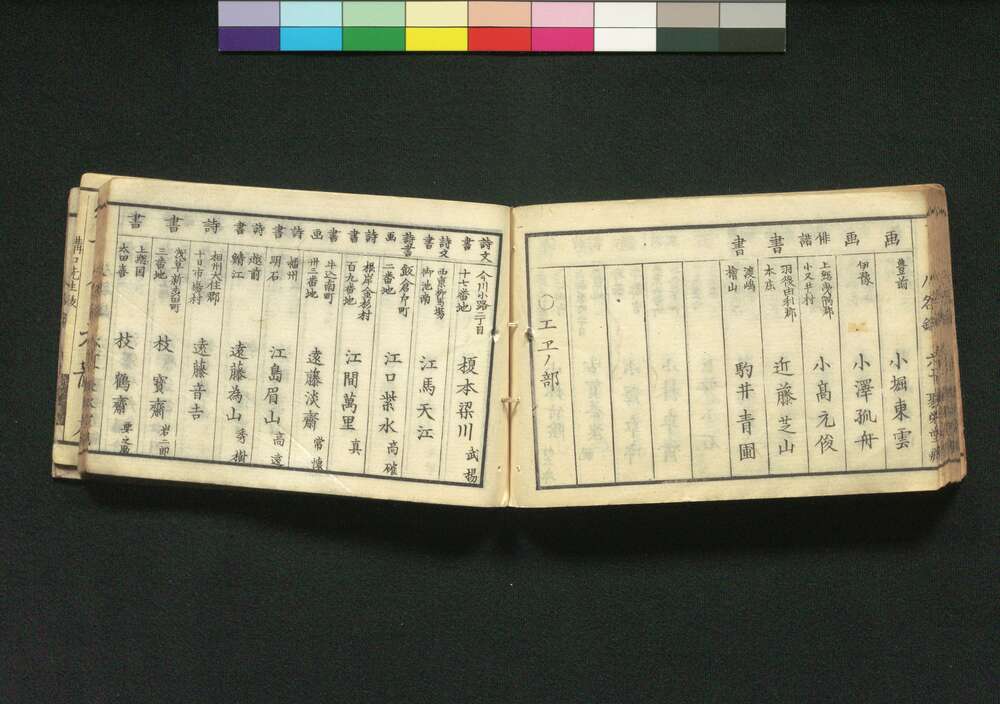 画 豊前 小堀東雲
画 伊豫 小澤孤舟
俳諧 上総夷隅郡小又井村 小髙元俊
書 羽後由利郡本庄 近藤芝山
書 渡嶋檜山 駒井青圃
○エヱノ部
詩文書 今川小路二丁目十七番地 榎本梁川 武揚
詩文書 西京柳馬場御池南 江馬天江
詩書画 飯倉片町二番地 江口紫水 高確
詩書 根岸金杉村百九番地 江間萬里 真
書画 牛込南町卅三番地 遠藤淡齋 常懐
詩書 播州明石 江島眉山 高遠
詩書 越前鯖江 遠藤為山 秀樹
詩 相州大住郡十日市場村 遠藤音吉
書 浅草新畄町三番地 枝寳齋
書 上総国太田喜 枝鶴齋